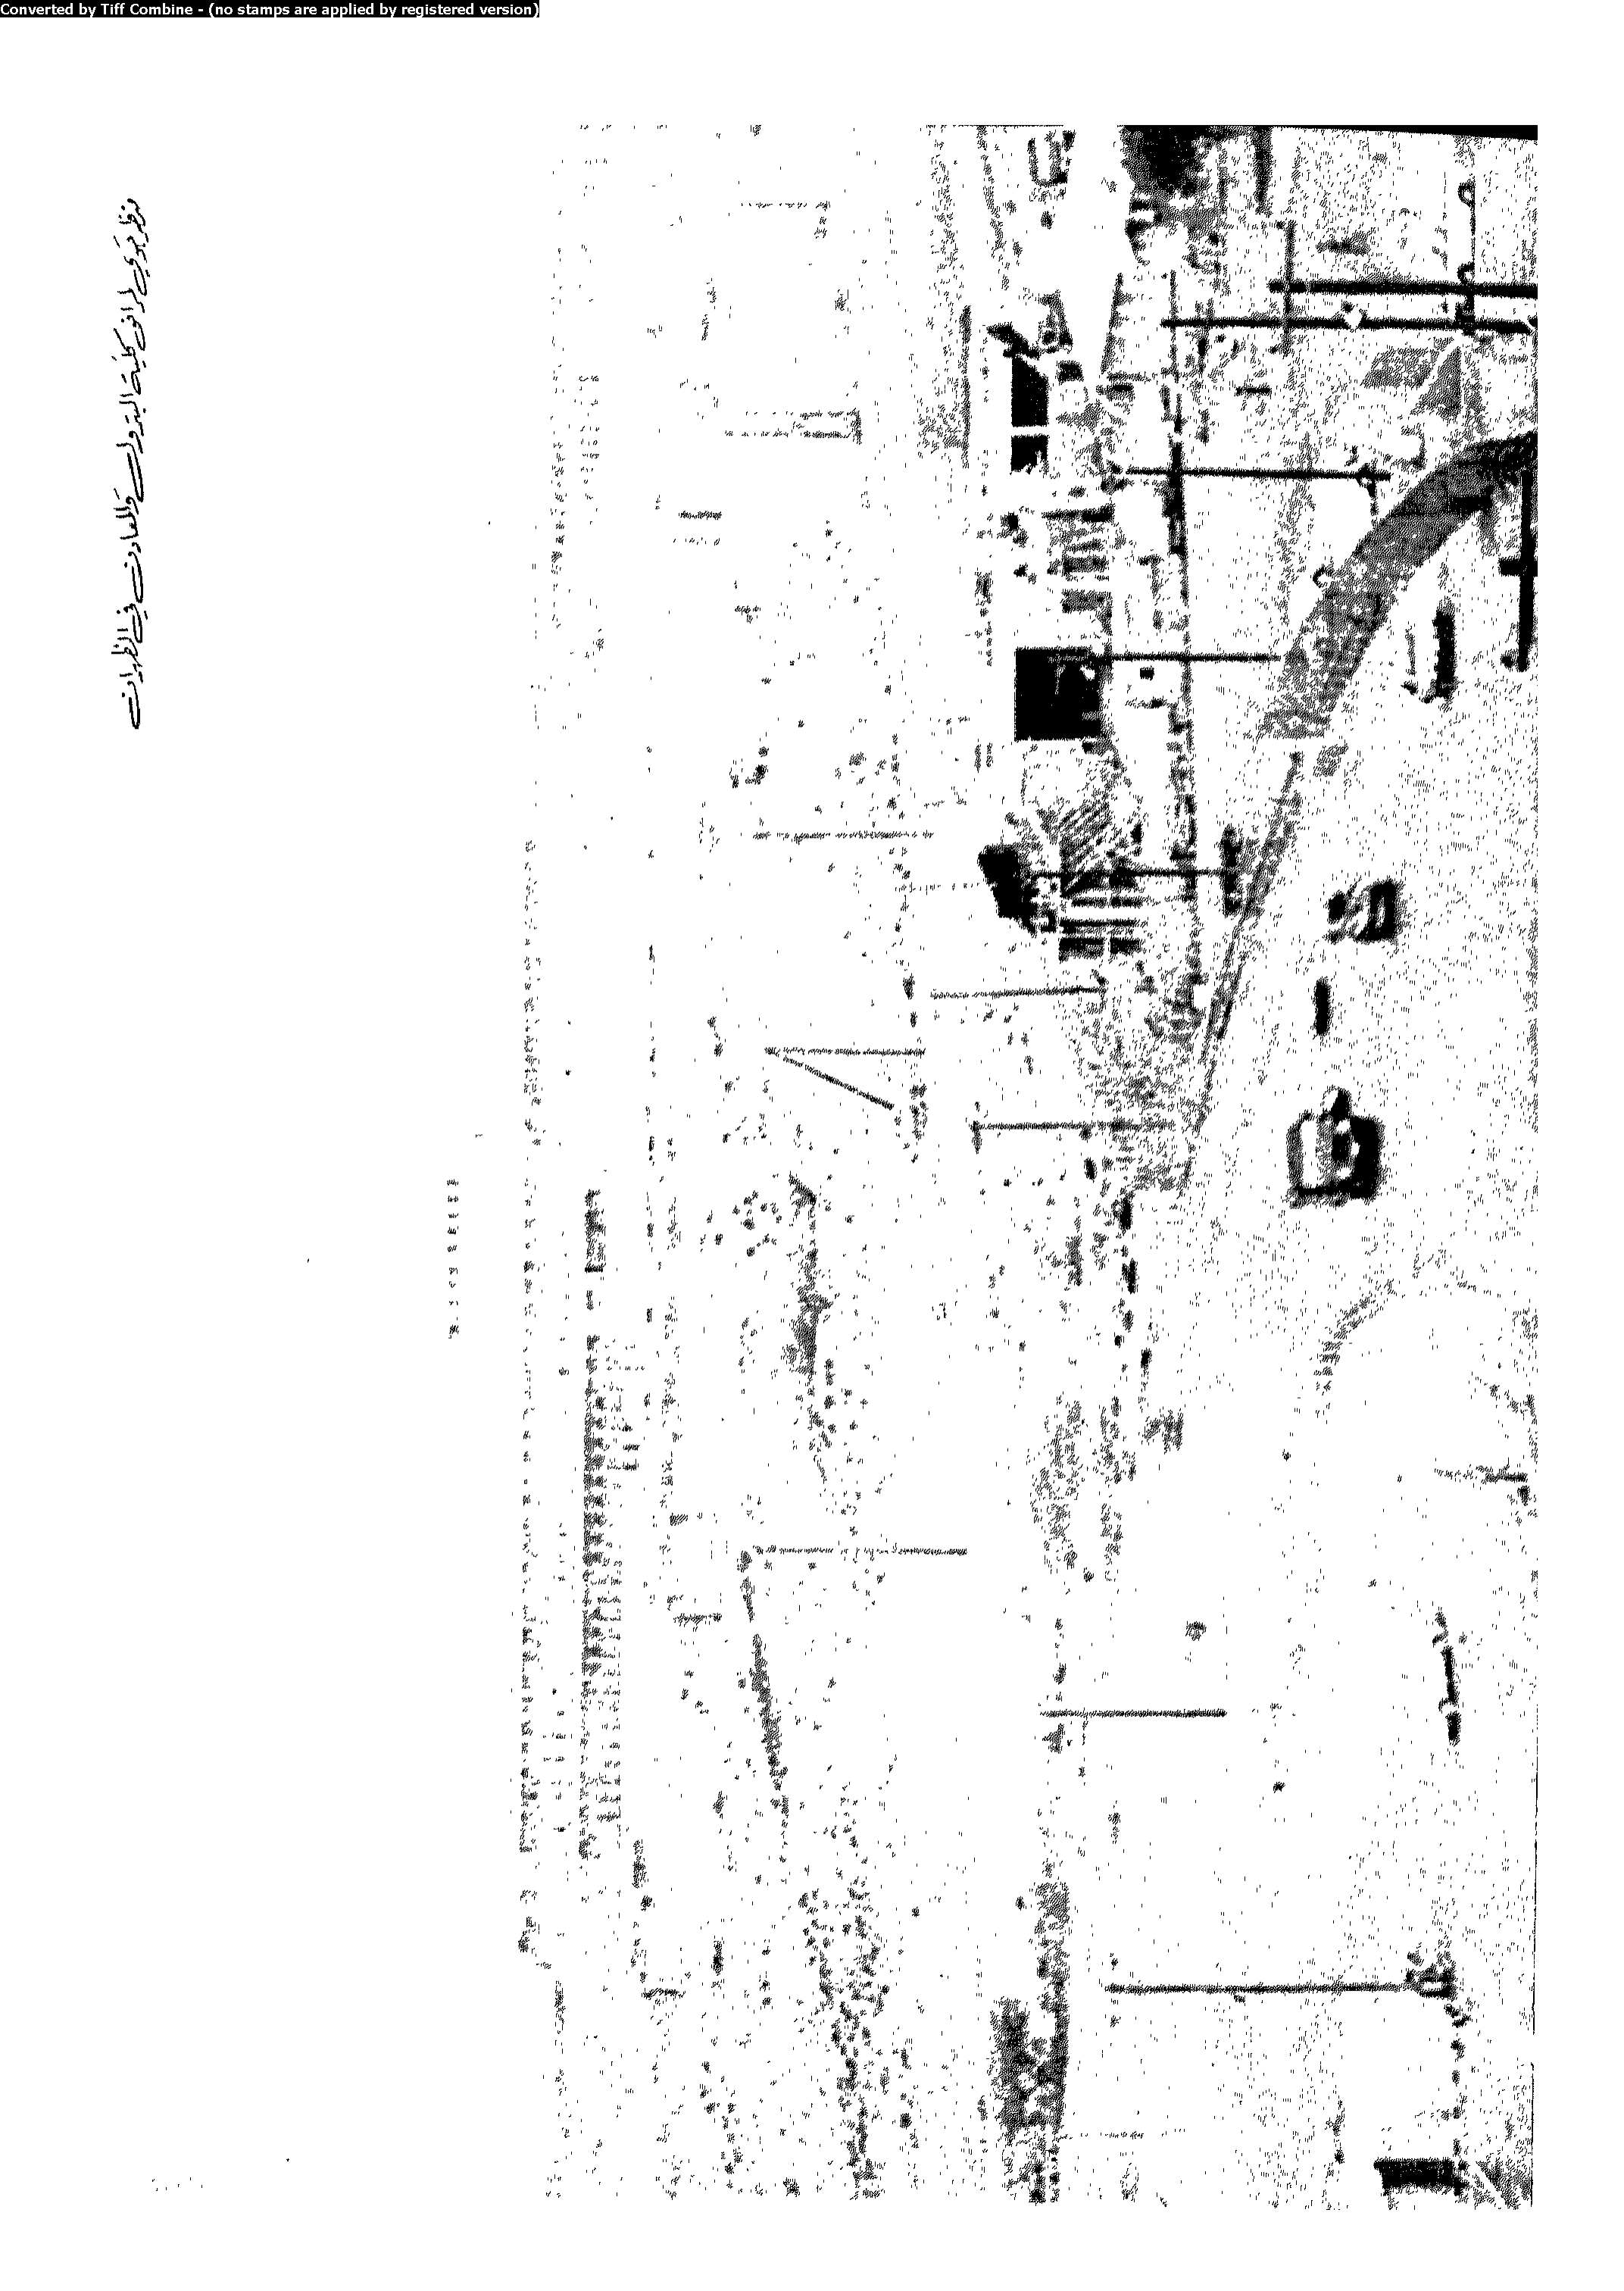 Converted by Tiff Combine - (no stamps are applied by registered version)
منظر جوي لمرافق كلية البترول والمعادن في الظهران